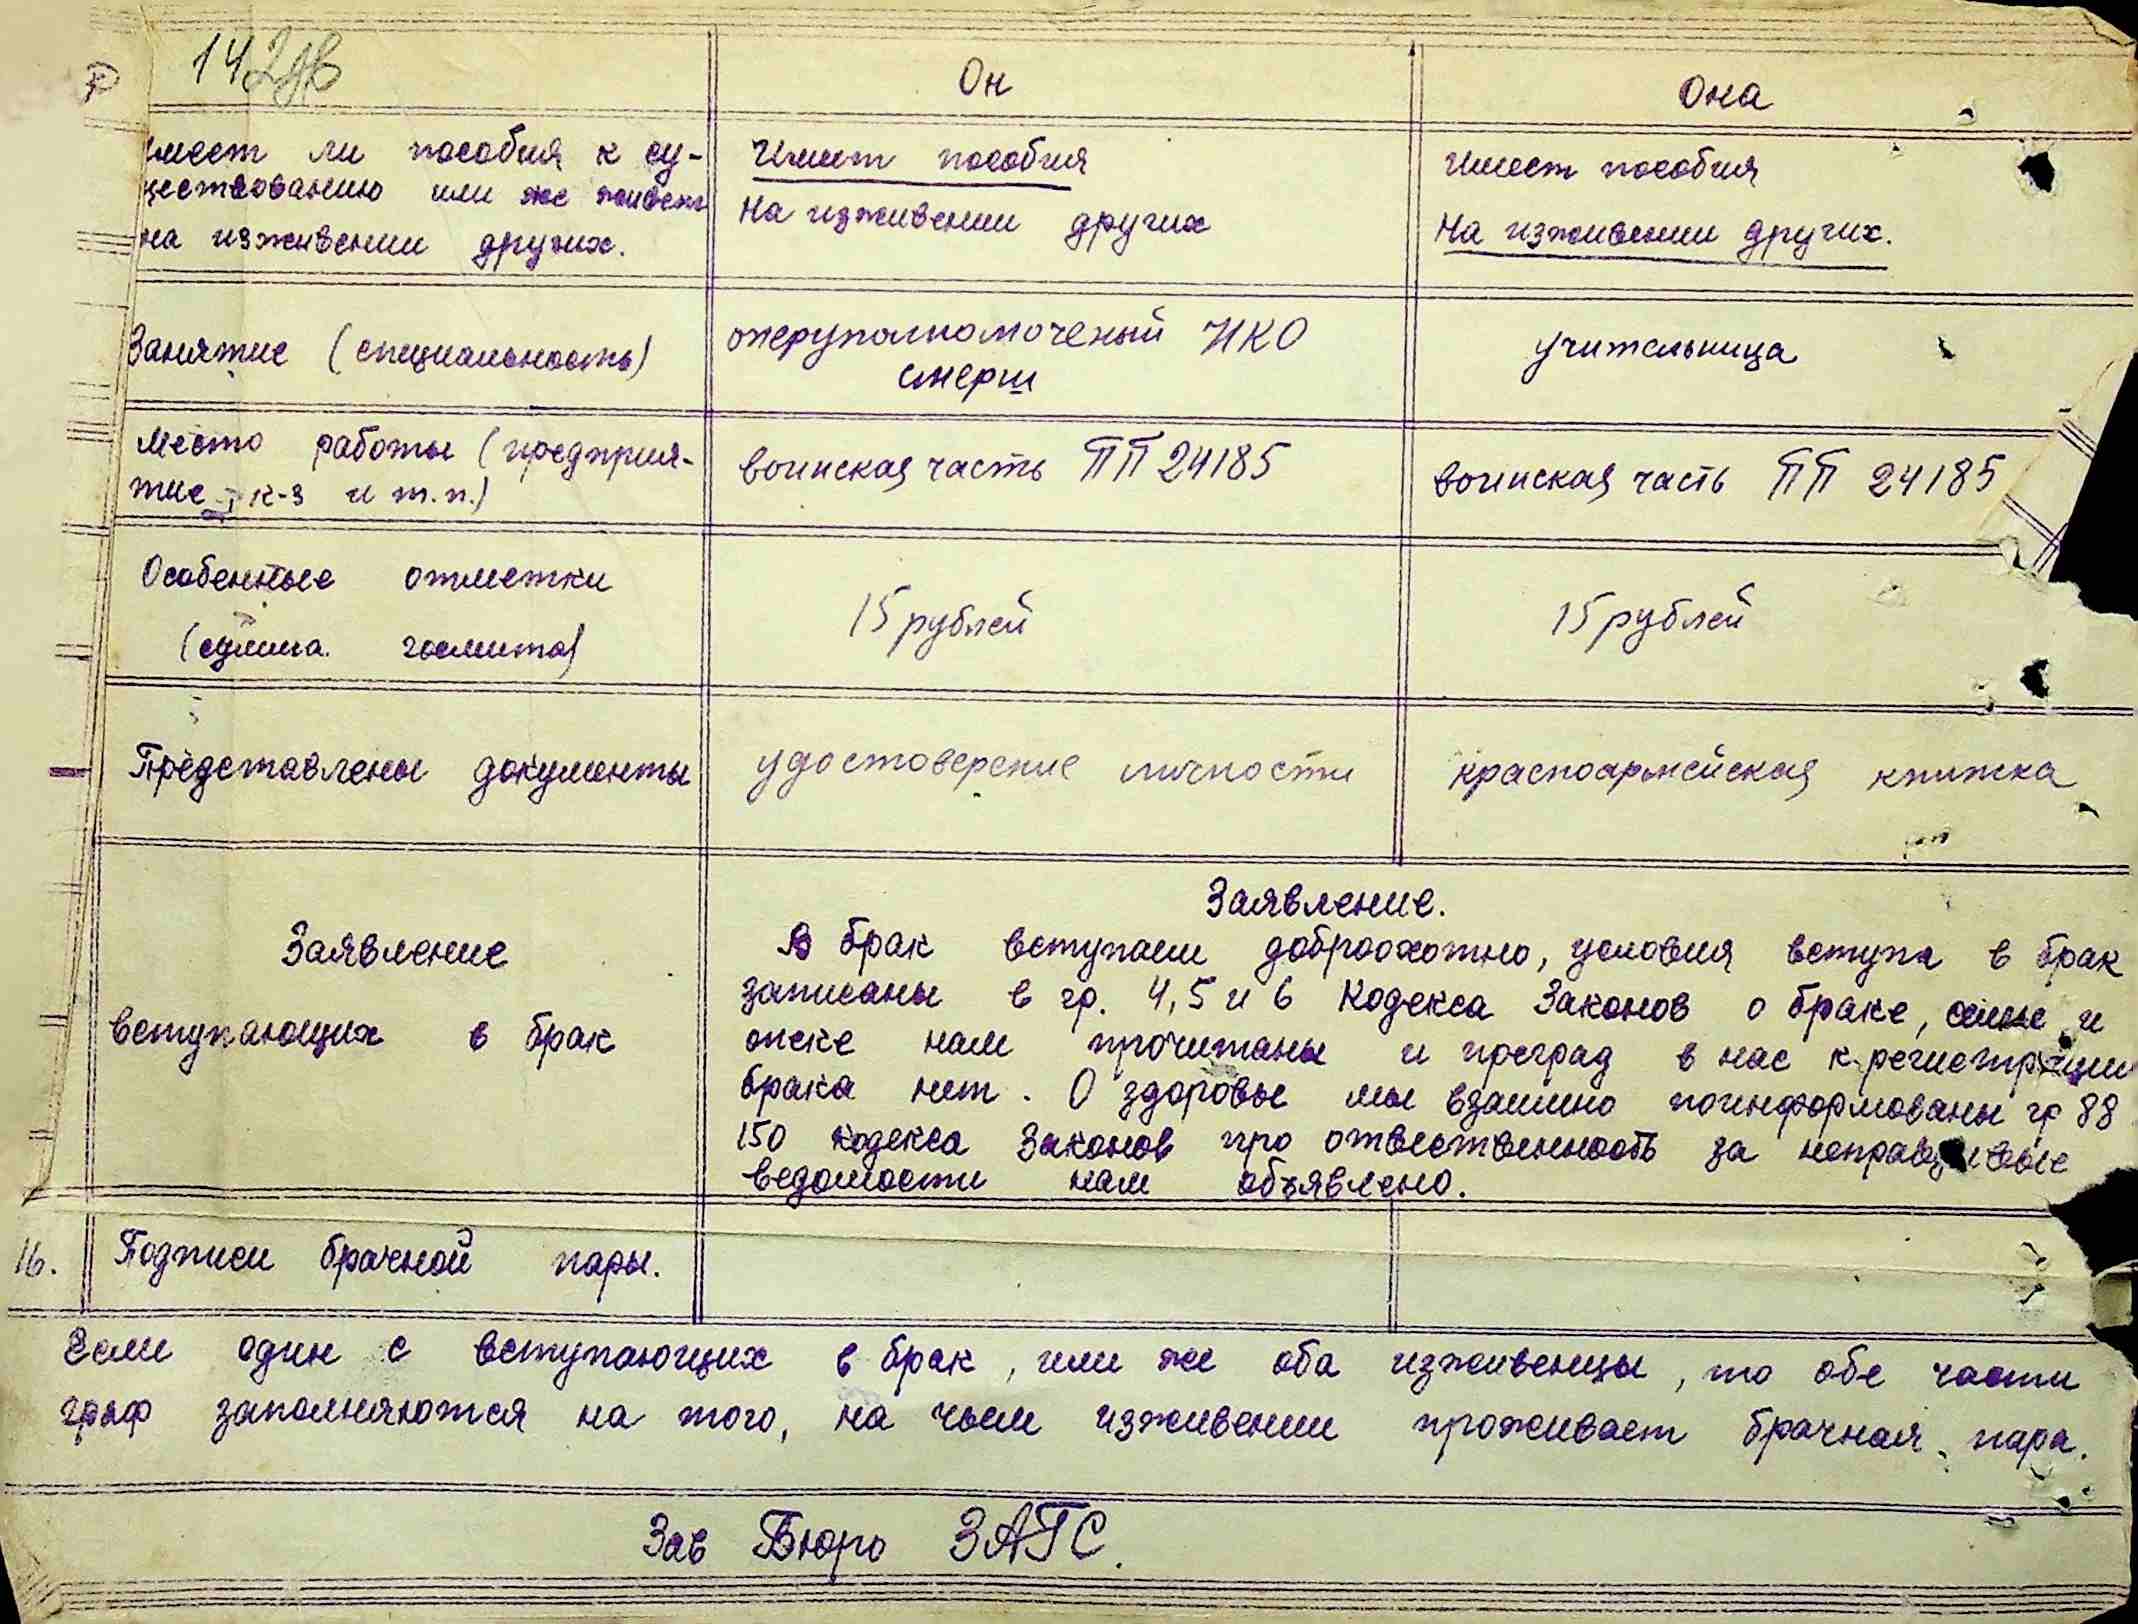 142
Он
Она
имеет ли пособия к су-
ществованию или же живет
на изживении других.
Имеет пособия
На изживении других
Имеет пособия
На изживении других.
Занятие (специальность)
оперуполномоченый НКО
смерш
учительница
Место работы (предприя-
тие, к-з и т.п.)
воинская часть ПП 24185
воинская часть ПП 24185
Особенные отметки
(сумма госмита)
15 рублей
15 рублей
Представлены документы
удостоверение личности
красноармейская книжка
Заявление
вступающих в брак
Заявление.
В брак вступаем доброохотно, условия вступа в брак
записаны в гр. 4, 5 и 6 Кодекса Законов о браке, семье и
опеке нам прочитаны и преград в нас к регистрации
брака нет. О здоровье мы взаимно поинформованы гр 88
150 кодекса Законов про отвественность за неправдивые
ведомости нам объявлено.
16. Подписи брачной пары.
Если один с вступающих в брак, или же оба изживенцы, то обе части
граф заполняются на того, на чьем изживении проживает брачная пара.
Зав Бюро ЗАГС.